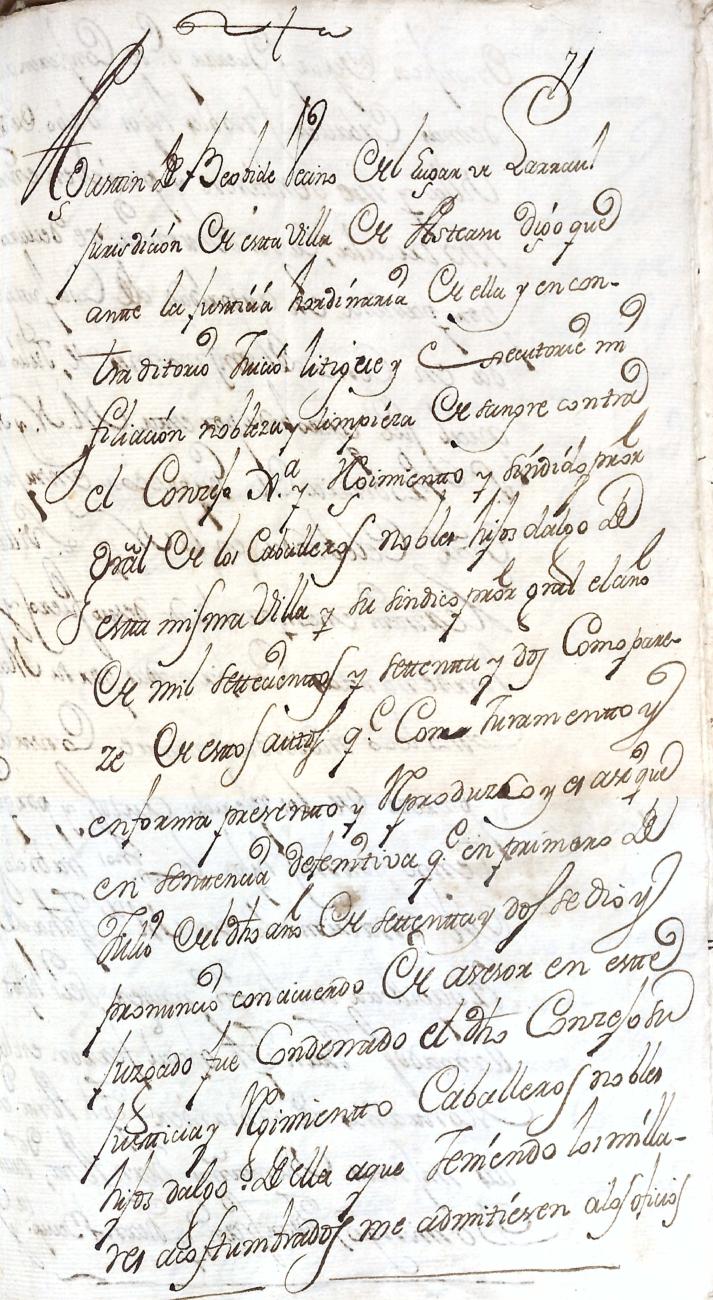 71
Agustin de Beobide Vecino del Lugar de Larraul
jurisdición de esta Villa de Asteasu digo que
ante la justicia hordinaria de ella y en con-
traditorio Juicio litigue y executorie mi
filiación nobleza y limpieza de sangre contra
el Conzejo Jª. y Rejimiento y síndico pror
gral de los Caballeros nobles hijos dalgo de
esta misma Villa y su sindico pror gral el año
de mil settecientos y settenta y dos Como pare-
ze de estos autos q.e Con Juramentto y
en forma presento y Reproduzco y es asi que
en sentencia definitiva q.e en primero de
Julio del dho año de settentta y dos se dio y
pronuncio con acuerdo de asesor en este
juzgado fue Condenado el dho Conzejo su
justicia y Rejimiento Caballeros nobles
hijos dalgo de ella a que Teniendo los milla-
res acostumbrados me admitiesen a los oficios